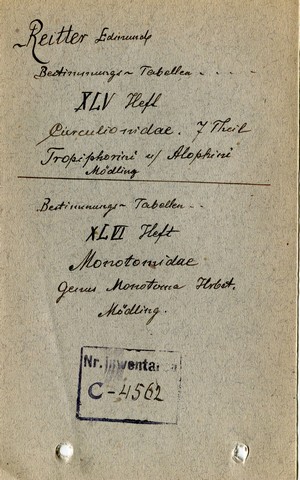 Reitter Edmund
Bestimmungs- Tabellen . . . .
XLV Heft
Curculionidae. 7 Theil
Tropiphorini u/ Alophini
Mödling
Bestimmungs- Tabellen . .
XLVI Heft
Monotomidae
Genus Monotoma Hrbst.
Mödling.
Nr. inwentarza
C-4562